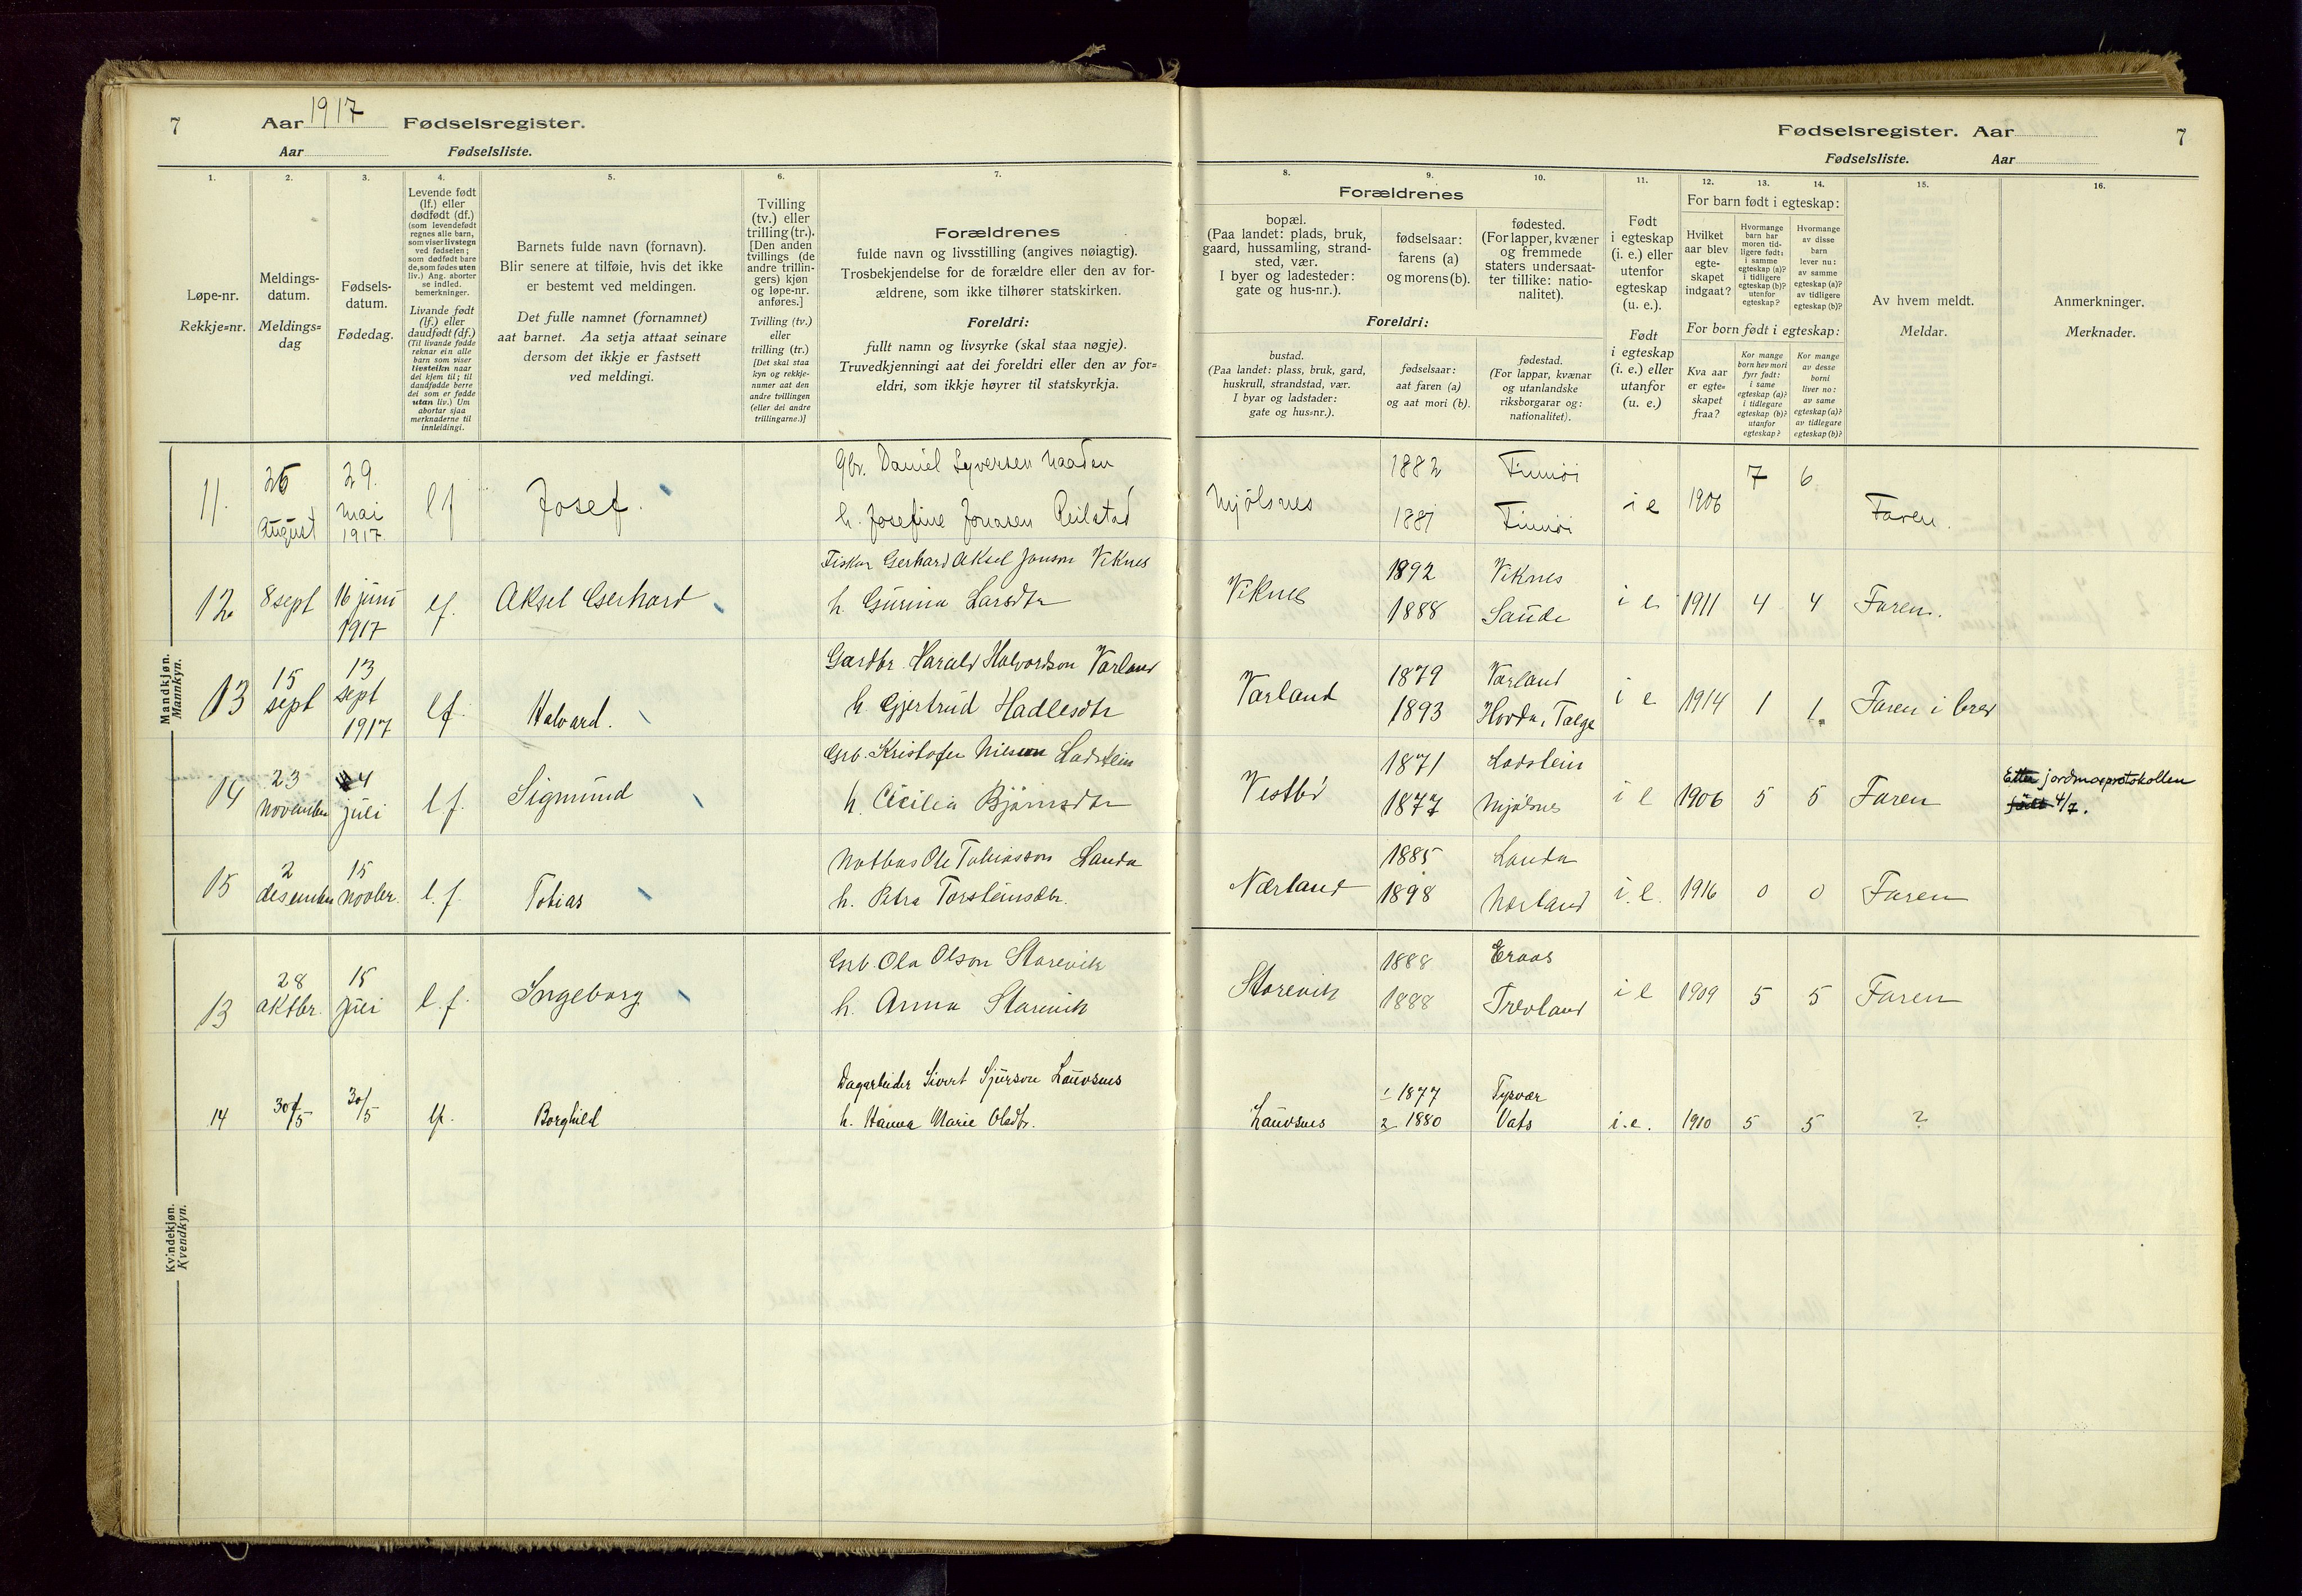 7 Aar 1917 Fødselsregister.
Aar Fødselsliste.
Fødselsregister. Aar 7
Fødselsliste. Aar
1. 2. 3. 4. 5. 6. 7.
Løpe-nr.
Rekkje=nr.
Meldings-
datum.
Meldings=
dag
Fødsels-
datum.
Fødedag.
Levende født
(lf.) eller
dødfødt (df.)
(som levendefødt
regnes alle barn,
som viser livstegn
ved fødselen;
som dødfødt bare
de, som fødes uten
liv.) Ang. aborter
se indled.
bemerkninger.
Livande født
(lf.) eller
daudfødt (df.)
(Til livande fødde
reknar ein alle
barn som viser
livsteikn naar
dei kjem til; til
daudfødde berre
dei som er fødde
utan liv.) Um
abortar sjaa
merknaderne til
innleidingi.
Barnets fulde navn (fornavn).
Blir senere at tilføie, hvis det ikke
er bestemt ved meldingen.
Det fulle namnet (fornamnet)
aat barnet. Aa setja attaat seinare
dersom det ikkje er fastsett
ved meldingi.
Tvilling
(tv.) eller
trilling (tr.).
[Den anden
tvillings (de
andre trillin-
gers) kjøn
og løpe-nr.
anføres.]
Tvilling (tv.)
eller
trilling (tr.)
[Det skal staa
kyn og rekkje-
numer aat den
andre tvillingen
(eller dei andre
trillingarne.)]
Forældrenes
fulde navn og livsstilling (angives nøiagtig).
Trosbekjendelse for de forældre eller den av for-
ældrene, som ikke tilhører statskirken.
Foreldri:
fullt namn og livsyrke (skal staa nøgje).
Truvedkjenningi aat dei foreldri eller den av for=
eldri, som ikkje høyrer til statskyrkja.
8. 9. 10. 11. 12. 13. 14. 15. 16.
Forældrenes
bopæl.
(Paa landet: plads, bruk,
gaard, hussamling, strand-
sted, vær.
I byer og ladesteder:
gate og hus-nr.).
fødselsaar:
farens (a)
og morens (b).
fødested.
(For lapper, kvæner
og fremmede
staters undersaat-
ter tillike: natio-
nalitet).
Foreldri:
bustad.
(Paa landet: plass, bruk, gard,
huskrull, strandstad, vær.
I byar og ladstader:
gate og hus=nr.).
fødselsaar:
aat faren (a)
og aat mori (b).
fødestad.
(For lappar, kvænar
og utanlandske
riksborgarar og:
nationalitet).
Født
i egteskap
(i. e.) eller
utenfor
egteskap
(u. e.).
Født
i egteskap
(i. e.) eller
utanfor
(u. e.)
For barn født i egteskap:
Hvilket
aar blev
egte-
skapet
indgaat?
Hvormange
barn har
moren tid-
ligere født:
i samme
egteskap (a)?
i tidligere
egteskap (b)?
utenfor
egteskap?
Hvormange
av disse
barn
lever nu:
av samme
egteskap (a)?
av tidligere
egteskap (b)?
For born født i egteskap:
Kva aar
er egte=
skapet
fraa?
Kor mange
born hev mori
fyrr født:
i same
egteskap (a)?
i tidlegare
egteskap (b)?
utanfor
egteskap?
Kor mange
av desse
borni
liver no:
av same
egteskap (a)?
av tidlegare
egteskap (b)?
Av hvem meldt.
Meldar.
Anmerkninger.
Merknader.
Mandkjøn.
Mannkyn.
11. 26 August 29. mai 1917. lf Josef.
gbr. Daniel Syversen
h. Josefine Jonasen Reilstad
Mjölsnes 1882 1881 i e 1906 7 6 Faren.
12. 8 sept 16 juni 1917 lf. Aksel Gerhard
Fisker Gerhard Aksel Jonson Viknes
h. Gunna Larsdtr
Viknes 1892 Viknes 1888 Saude i e 1911 4 4 Faren.
13 15 sept 13 sept 1917 lf. Halvard.
Gardbr. Harald Halvordson Varland
h Gjertrud Hadlesdtr
Varland 1879 Varland 1893 Hovda, Talge i e 1914 1 1. Faren i brev
14 23 november 4 juli l f. Sigmund
Grb. Kristofer Nilsen Ladstein
h. Cicilia Bjørnsdtr
Vestbö 1871 Ladstein 1877 Mjølsnes i e 1906 5 5 Faren
Etter jordmorprotokollen
født 4/7.
15 2 desember 15 novbr. l. f. Tobias
Notbas Ole Tobiasson Landa
h. Petra Torsteinsdtr.
Nærland 1885 Landa 1898 Nærland i. e. 1916 0 0 Faren
Kvindekjøn.
Kvendkyn.
13 28 oktbr. 15 juli l. f. Ingeborg
Grb. Ola Olson Storevik
h. Anna Storevik
Storevik 1888 Eraas 1888 Trovland i e 1909 5 5 Faren
14 30/5 30/5 lf. Borghild
Dagarbeider Sivert Sjurson Lauvsnes
h. Hanna Marie Olsdtr.
Lauvsnes 1 1877 Tysvær 2 1880 Vats i. e. 1910 5 5 ?